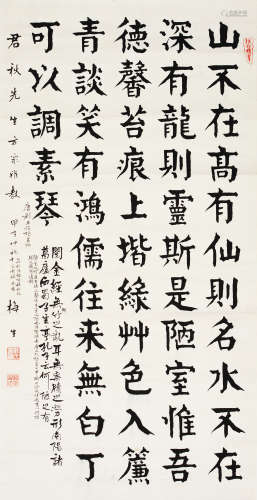 山不在髙有仙則名水不在
深有龍則靈斯是陋室惟吾
德馨苔痕上堦綠草色入簾
青談笑有鴻儒往來無白丁
可以調素琴
閱金經無竹之亂耳無案牘之勞形南陽諸
葛廬西蜀子雲亭孔子云何陋之有
君秋先生方家雅教
梅生